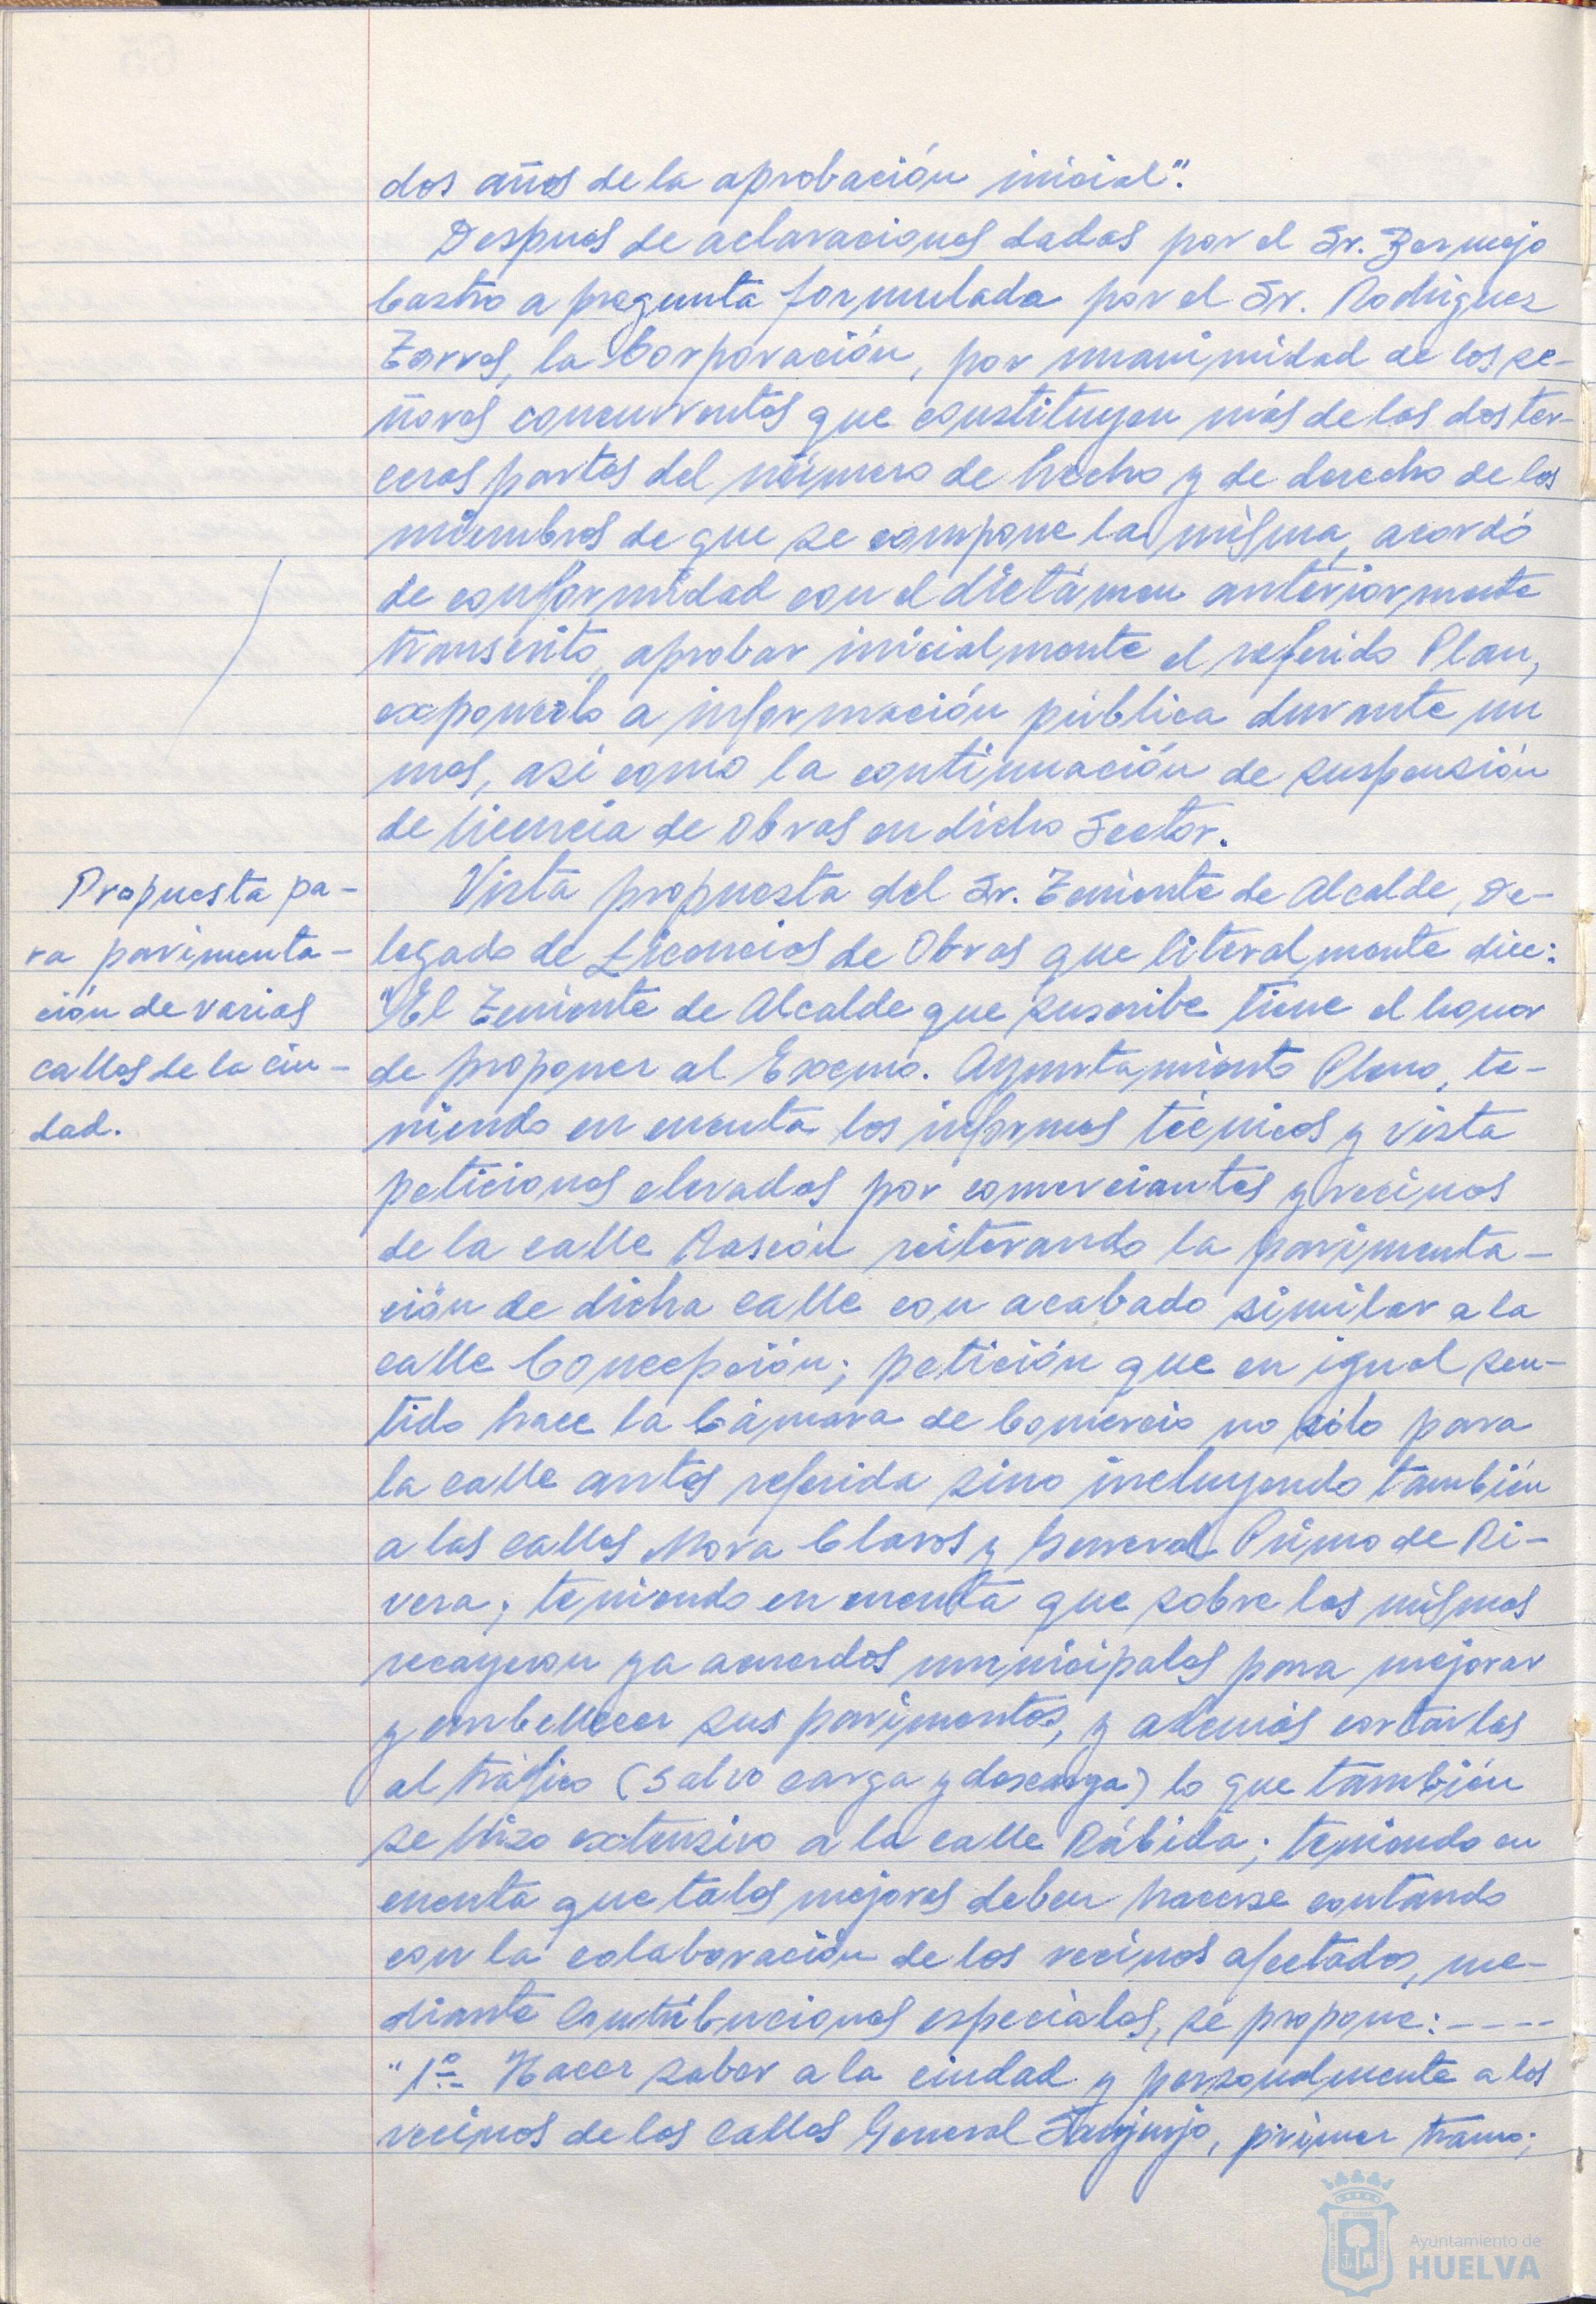 dos años de la aprobación inicial".
Despues de aclaraciones dadas por el Sr. Bermejo
Castro a pregunta formulada por el Sr. Rodriguez
Torres, la Corporación, por unanimidad de los se-
ñores concurrentes que constituyen más de las dos ter-
ceras partes del número de hecho y de derecho de los
miembros de que se compone la misma, acordó
de conformidad con el dictámen anteriormente
transcrito, aprobar inicialmente el referido Plan,
exponerlo a información pública durante un
mes, asi como la continuación de suspensión
de licencia de obras en dicho Sector.
Propuesta pa-
ra pavimenta-
ción de varias
calles de la ciu-
dad.
Vista propuesta del Sr. Teniente de Alcalde, De-
legado de Licencias de Obras que literalmente dice:
"El Teniente de Alcalde que suscribe tiene el honor
de proponer al Excmo. Ayuntamiento Pleno, te-
niendo en cuenta los informes técnicos y vista
peticiones elevadas por comerciantes y vecinos
de la calle Rascón reiterando la pavimenta-
ción de dicha calle con acabado similar a la
calle Concepción; petición que en igual sen-
tido hace la Cámara de Comercio no sólo para
la calle antes referida sino incluyendo también
a las calles Mora Claros y General Primo de Ri-
vera; teniendo en cuenta que sobre las mismas
recayeron ya acuerdos municipales para mejorar
y embellecer sus pavimentos, y además cortarlas
al tráfico (salvo carga y descarga) lo que también
se hizo extensivo a la calle Rábida; teniendo en
cuenta que tales mejoras deben hacerse contando
con la colaboración de los vecinos afectados, me-
diante Contribuciones especiales, se propone:----
"1º- Hacer saber a la ciudad y personalmente a los
vecinos de las calles General Sanjurjo, primer tramo;
Ayuntamiento de
HUELVA